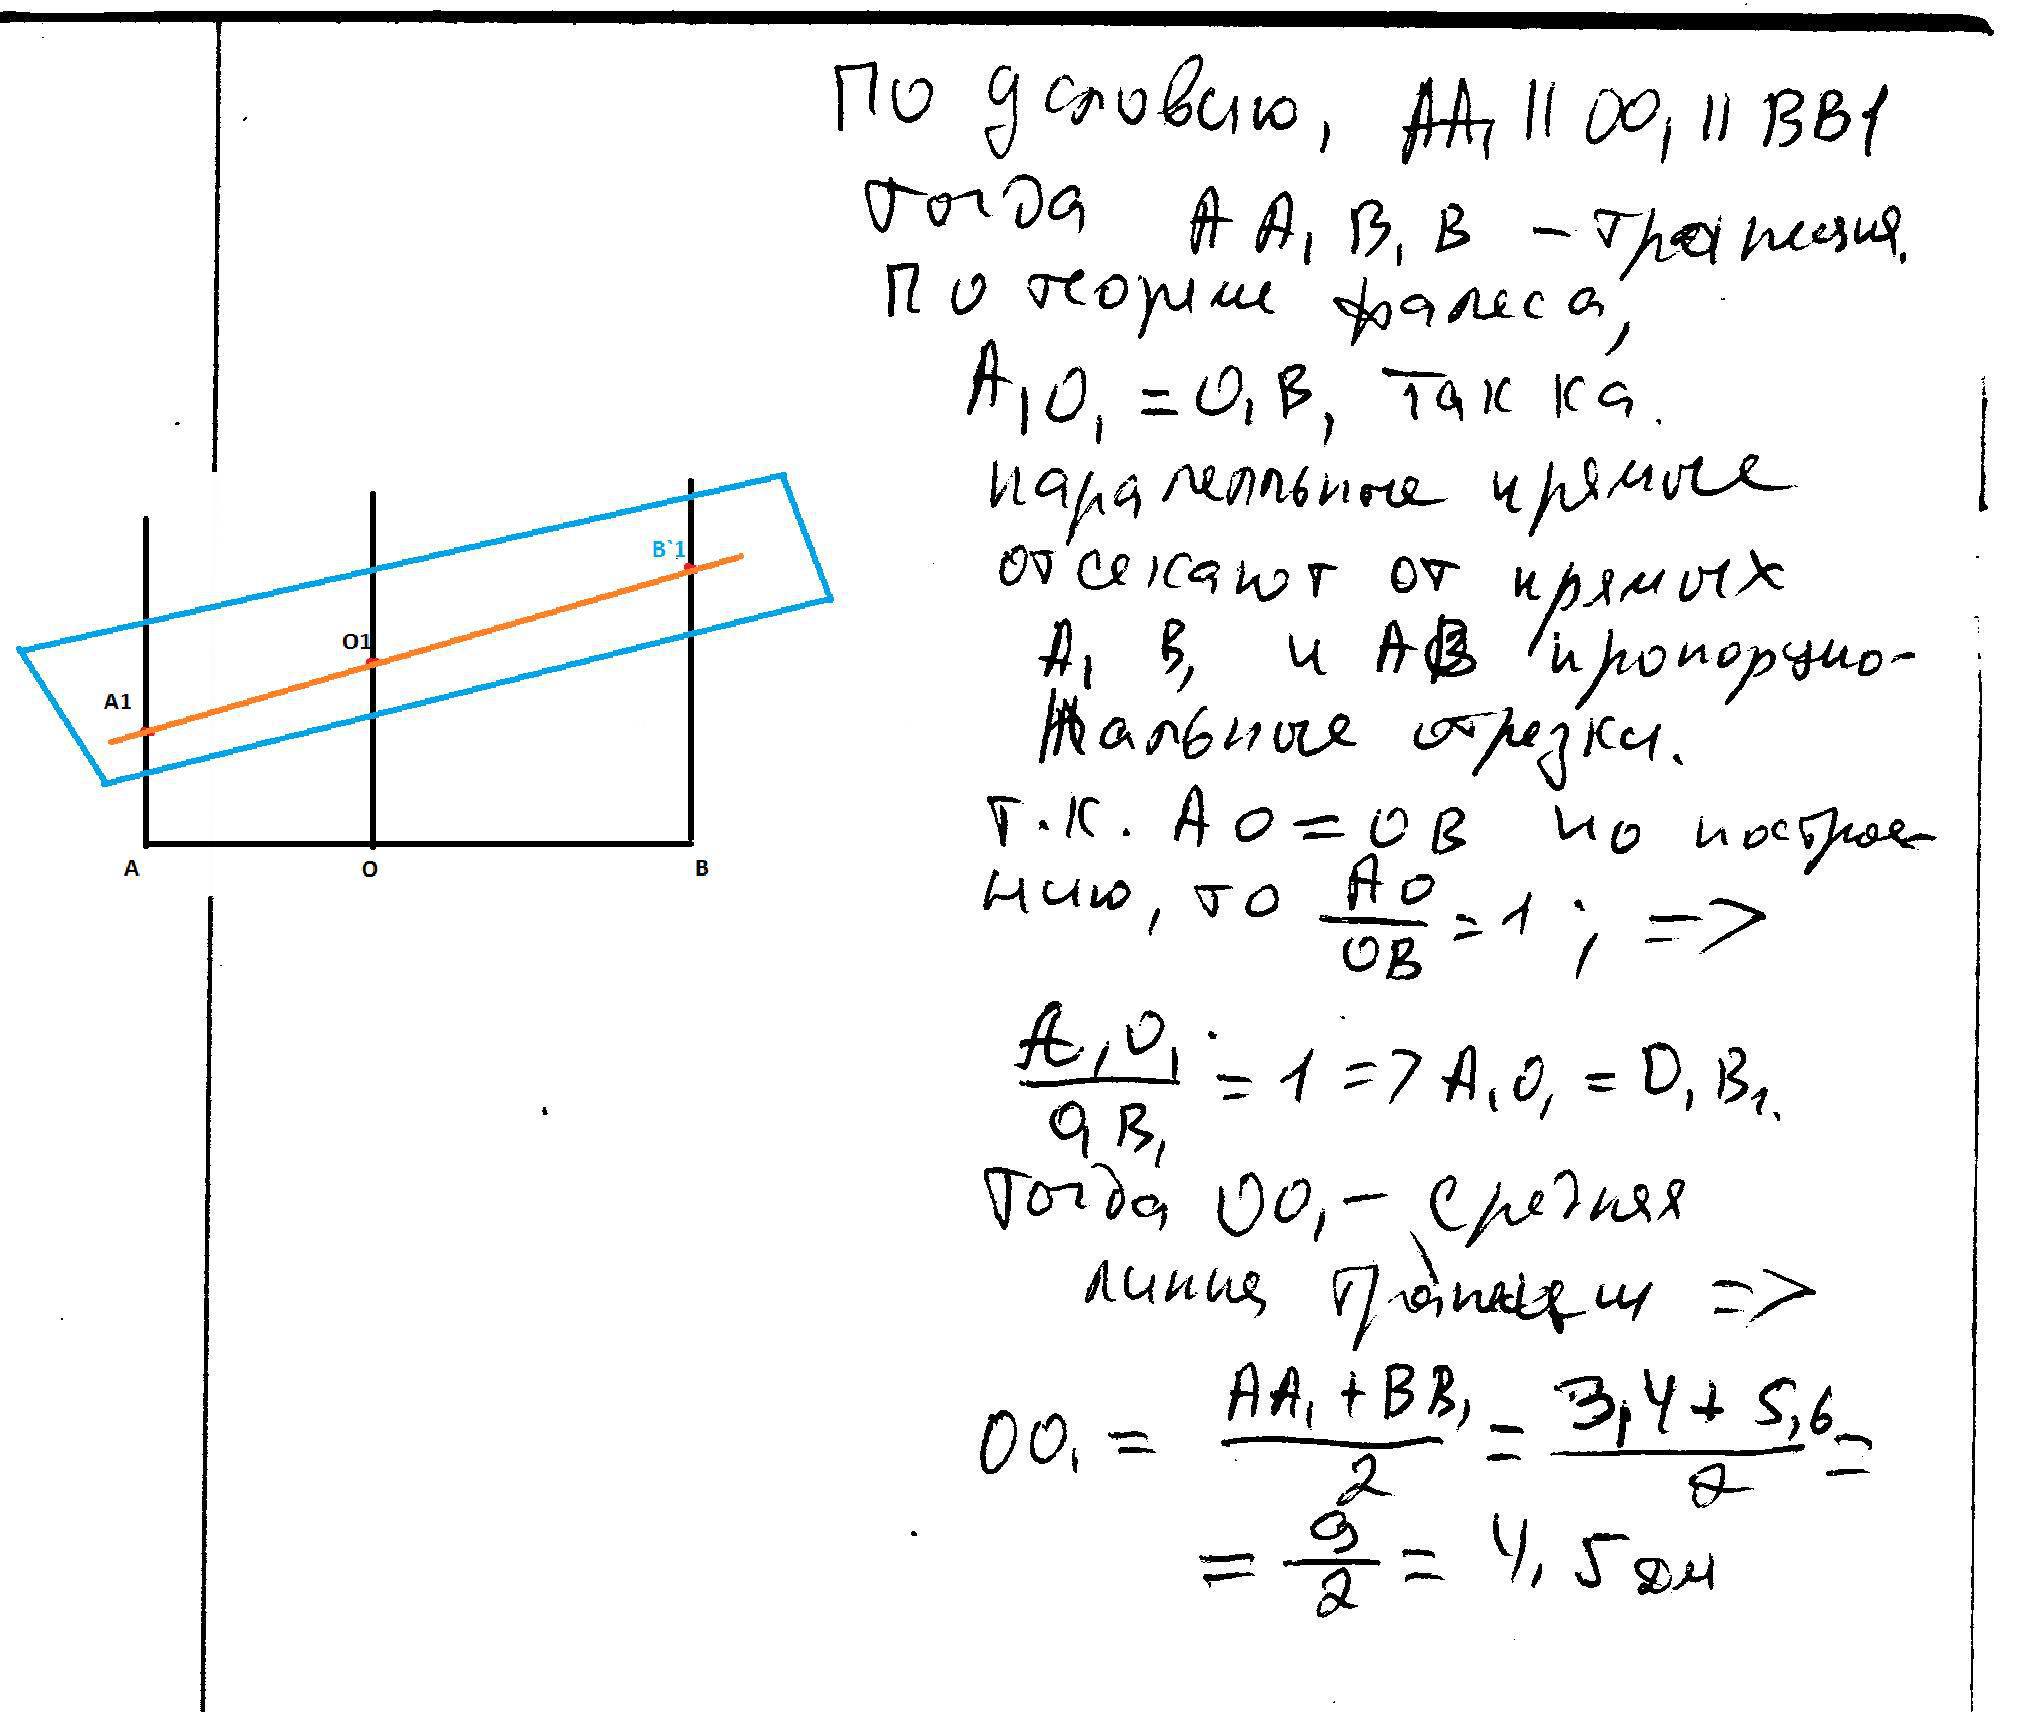 По условию, AA₁ || OO₁ || BB1
тогда AA₁B₁B – трапеция.
По теореме Фалеса,
A₁O₁ = O₁B, так ка.
паралелльные прямые
отсекают от прямых
A₁B₁ и AB пропорцио-
нальные отрезки.
т.к. AO = OB по построе-
нию, то AO/OB = 1; =>
A₁O₁/O₁B₁ = 1 => A₁O₁ = O₁B₁.
Тогда OO₁ – средняя
линия трапеции =>
OO₁ = (AA₁ + BB₁)/2 = (3,4 + 5,6)/2 =
= 9/2 = 4,5 дм
B`1
O1
A1
A O B